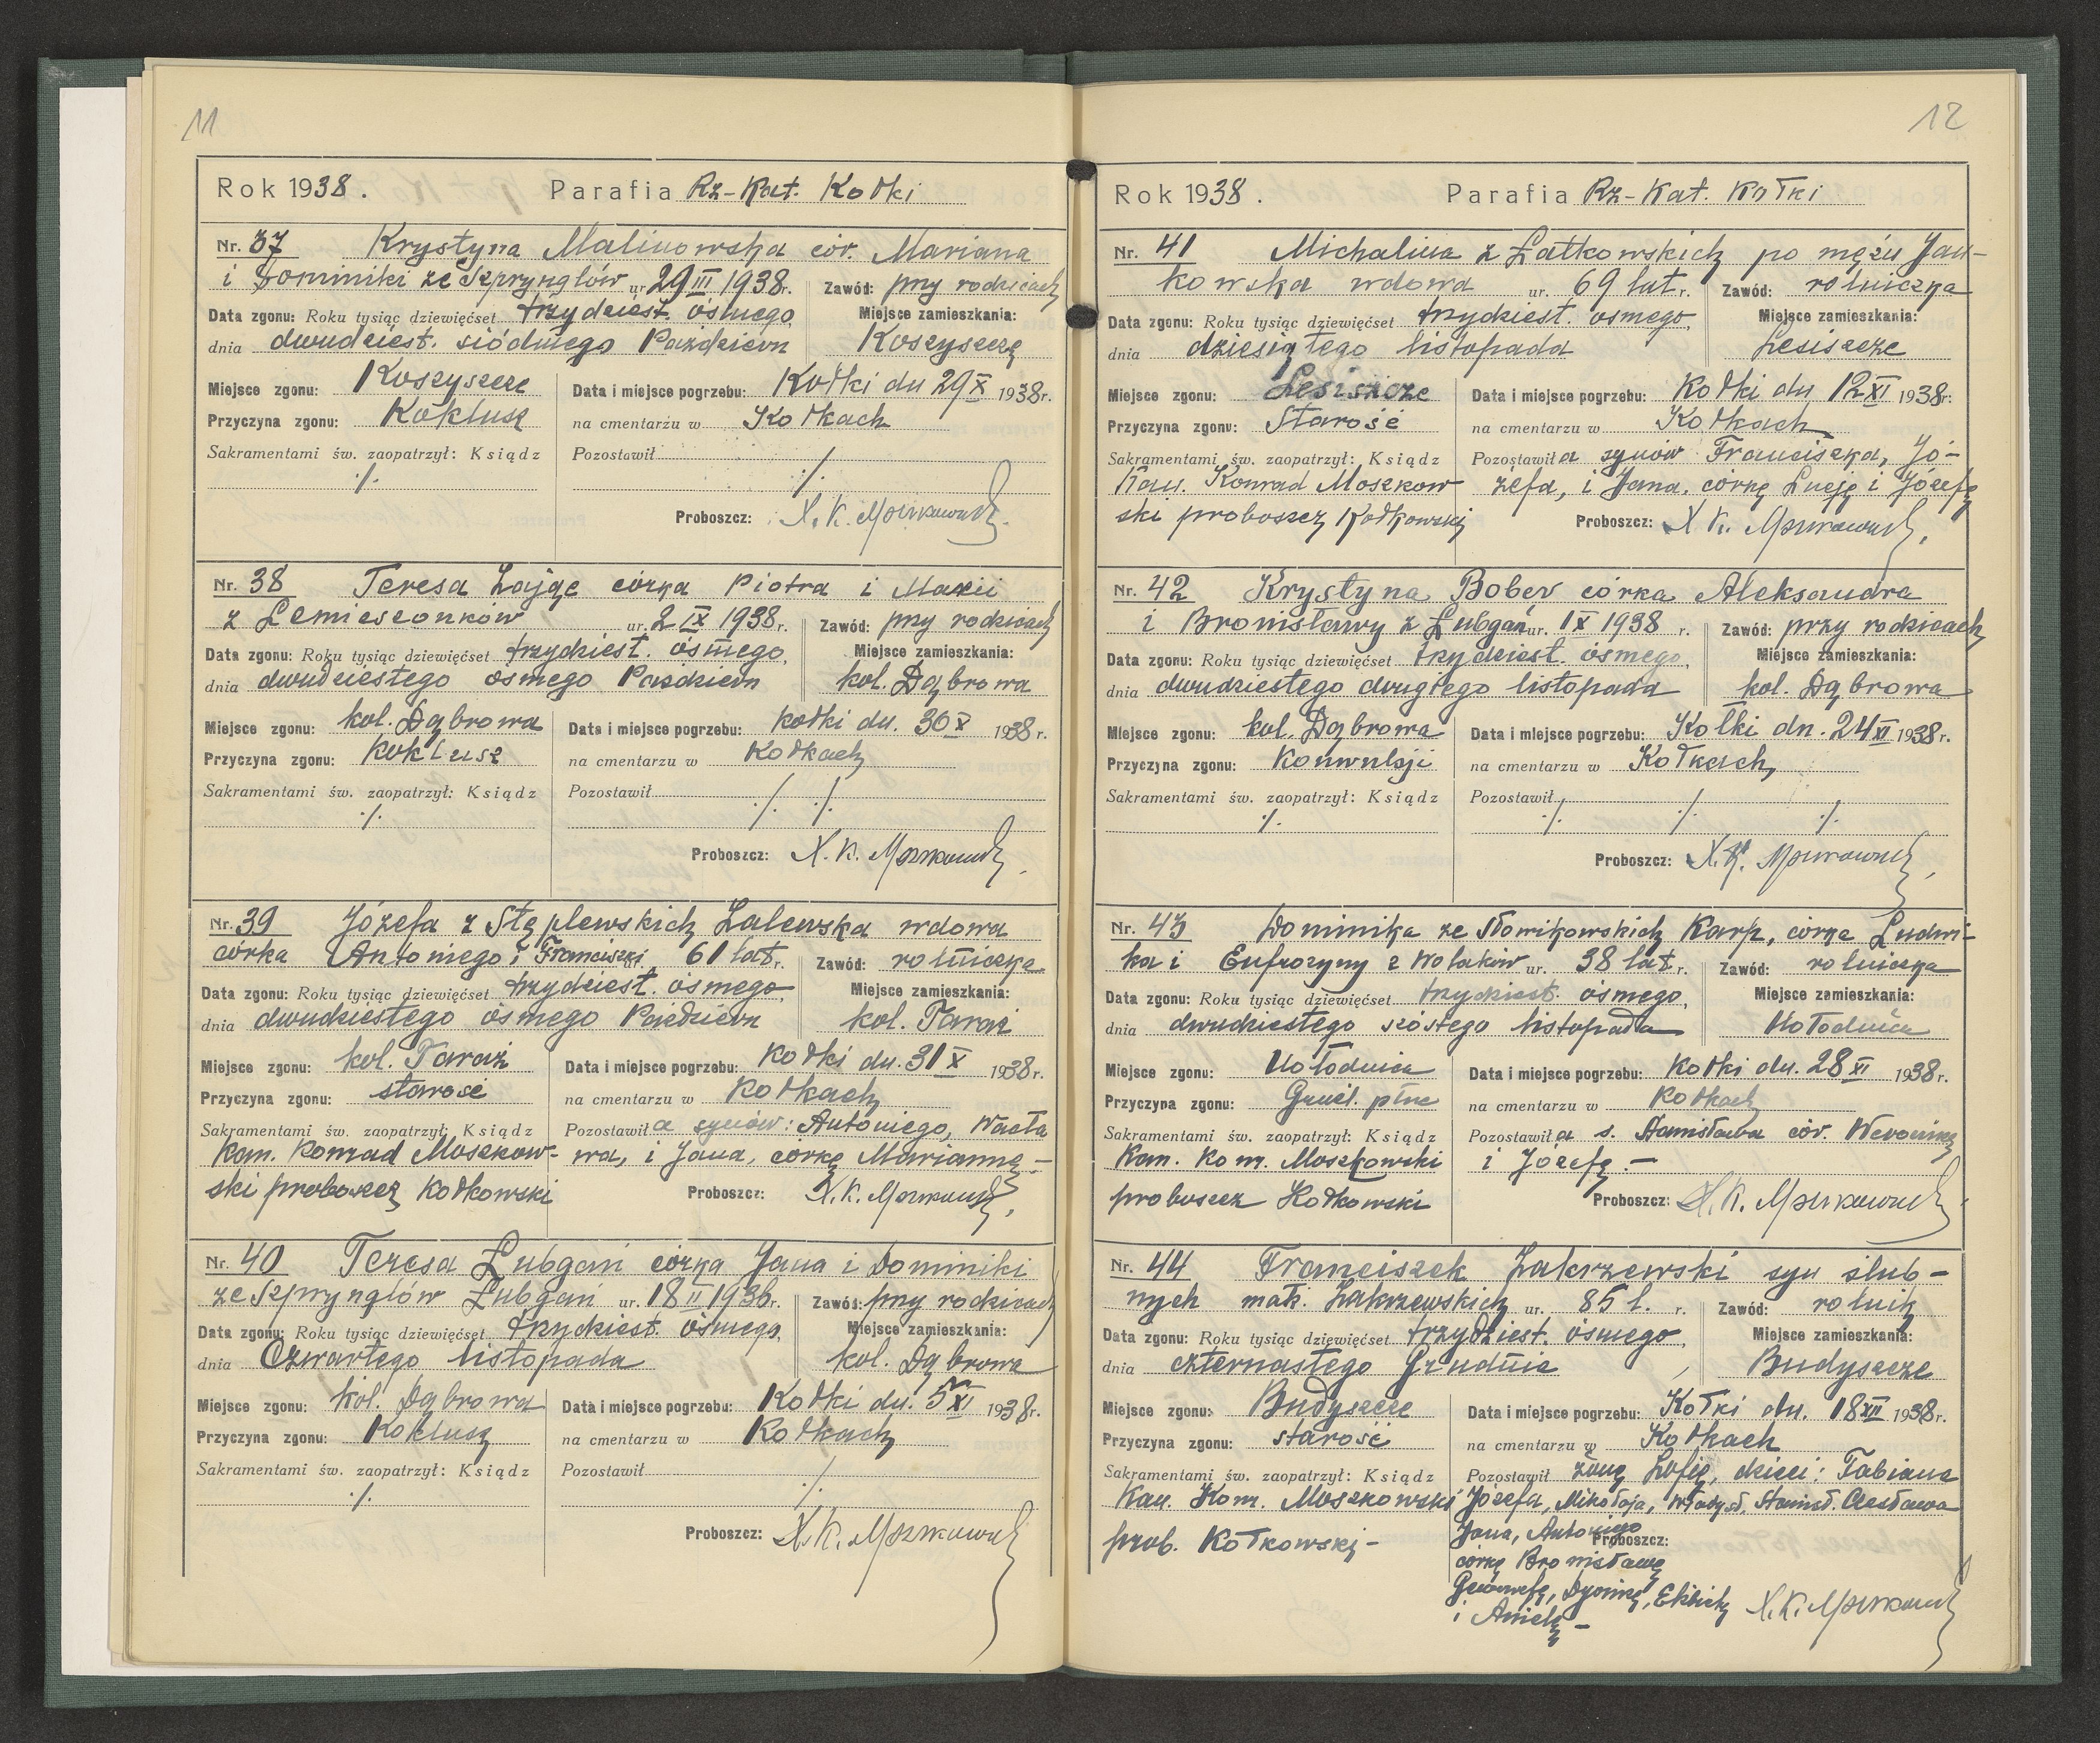 11
Rok 1938. Parafia Rz-Kat. Kołki
Nr. 37 Krystyna Malinowska cór. Mariana
i Dominiki ze Szprynglów ur. 29 III 1938 r. Zawód: przy rodzicach
Data zgonu: Roku tysiąc dziewięćset trzydziest. ósmego, Miejsce zamieszkania:
dnia dwudziest. siódmego Październ Koszyszczę
Miejsce zgonu: Koszyszcze Data i miejsce pogrzebu: Kołki dn 29 X 1938 r.
Przyczyna zgonu: Koklusz na cmentarzu w Kołkach
Sakramentami św. zaopatrzył: Ksiądz Pozostawił
./. ./.
Proboszcz: X. K. Moszkowski
Nr. 38 Teresa Zając córka Piotra i Marii
z Lemieszonków ur. 2 IX 1938 r. Zawód: przy rodzicach
Data zgonu: Roku tysiąc dziewięćset trzydziest. ósmego, Miejsce zamieszkania:
dnia dwudziestego ósmego Październ kol. Dąbrowa
Miejsce zgonu: kol. Dąbrowa Data i miejsce pogrzebu: Kołki dn. 30 X 1938 r.
Przyczyna zgonu: Koklusz na cmentarzu w Kołkach
Sakramentami św. zaopatrzył: Ksiądz Pozostawił ./. ./.
./.
Proboszcz: X. K. Moszkowski
Nr. 39 Józefa z Stęplewskich Zalewska wdowa
córka Antoniego i Franciszki ur. 61 lat r. Zawód: rolniczka
Data zgonu: Roku tysiąc dziewięćset trzydziest. ósmego, Miejsce zamieszkania:
dnia dwudziestego ósmego Październ kol. Taraż
Miejsce zgonu: kol. Taraż Data i miejsce pogrzebu: Kołki dn. 31 X 1938 r.
Przyczyna zgonu: starość na cmentarzu w Kołkach
Sakramentami św. zaopatrzył: Ksiądz Pozostawiła synów: Antoniego, Wacła
Kan. Konrad Moszkow- wa, i Jana, córkę Mariannę.-
ski proboszcz Kołkowski Proboszcz: X. K. Moszkowski
Nr. 40 Teresa Łubgań córka Jana i Dominiki
ze Szprynglów Łubgań ur. 18 II 1936 r. Zawód: przy rodzicach
Data zgonu: Roku tysiąc dziewięćset trzydziest. ósmego, Miejsce zamieszkania:
dnia Czwartego listopada kol. Dąbrowa
Miejsce zgonu: kol. Dąbrowa Data i miejsce pogrzebu: Kołki dn. 5 XI 1938 r.
Przyczyna zgonu: Koklusz na cmentarzu w Kołkach
Sakramentami św. zaopatrzył: Ksiądz Pozostawił
./. ./.
Proboszcz: X. K. Moszkowski
12
Rok 1938. Parafia Rz-Kat. Kołki
Nr. 41 Michalina z Łatkowskich po mężu Jan-
kowska wdowa ur. 69 lat r. Zawód: rolniczka
Data zgonu: Roku tysiąc dziewięćset trzydziest. ósmego, Miejsce zamieszkania:
dnia dziesiątego listopada Lesiszcze
Miejsce zgonu: Lesiszcze Data i miejsce pogrzebu: Kołki dn 12 XI 1938 r.
Przyczyna zgonu: Starość na cmentarzu w Kołkach
Sakramentami św. zaopatrzył: Ksiądz Pozostawiła synów Franciszka, Jó-
Kan. Konrad Moszkow zefa, i Jana, córkę Łucję i Józefę
ski proboszcz Kołkowski Proboszcz: X K. Moszkowski
Nr. 42 Krystyna Bober córka Aleksandra
i Bronisławy z Łubgań ur. IX 1938 r. Zawód: przy rodzicach
Data zgonu: Roku tysiąc dziewięćset trzydziest. ósmego, Miejsce zamieszkania:
dnia dwudziestego drugiego listopada kol. Dąbrowa
Miejsce zgonu: kol. Dąbrowa Data i miejsce pogrzebu: Kołki dn. 24 XI 1938 r.
Przyczyna zgonu: Konwulsji na cmentarzu w Kołkach
Sakramentami św. zaopatrzył: Ksiądz Pozostawił
./. ./. ./. ./.
Proboszcz: X. K. Moszkowski
Nr. 43 Dominika ze Słowikowskich Karp, córka Ludwi-
ka i Eufrozyny z Wolaków ur. 38 lat r. Zawód: rolniczka
Data zgonu: Roku tysiąc dziewięćset trzydziest. ósmego, Miejsce zamieszkania:
dnia dwudziestego szóstego listopada Hołodnica
Miejsce zgonu: Hołodnica Data i miejsce pogrzebu: Kołki dn. 28 XI 1938 r.
Przyczyna zgonu: Gruźl. płuc na cmentarzu w Kołkach
Sakramentami św. zaopatrzył: Ksiądz Pozostawiła s. Stanisława cór. Weronikę
Kan. Konr. Moszkowski i Józefę.-
proboszcz Kołkowski Proboszcz: X. K. Moszkowski
Nr. 44 Franciszek Zakrzewski syn ślub-
nych małż. Zakrzewskich ur. 85 l. r. Zawód: rolnik
Data zgonu: Roku tysiąc dziewięćset trzydziest. ósmego, Miejsce zamieszkania:
dnia czternastego Grudnia Budyszcze
Miejsce zgonu: Budyszcze Data i miejsce pogrzebu: Kołki dn. 18 XII 1938 r.
Przyczyna zgonu: starość na cmentarzu w Kołkach
Sakramentami św. zaopatrzył: Ksiądz Pozostawił żonę Zofię, dzieci: Fabiana
Kan. Konr. Moszkowski Józefa, Mikołaja, Władysł. Stanisł. Czesława
prob. Kołkowski- Jana, Antoniego Proboszcz:
córkę Bronisławę
Genowefę, i Anielę - X. K. Moszkowski